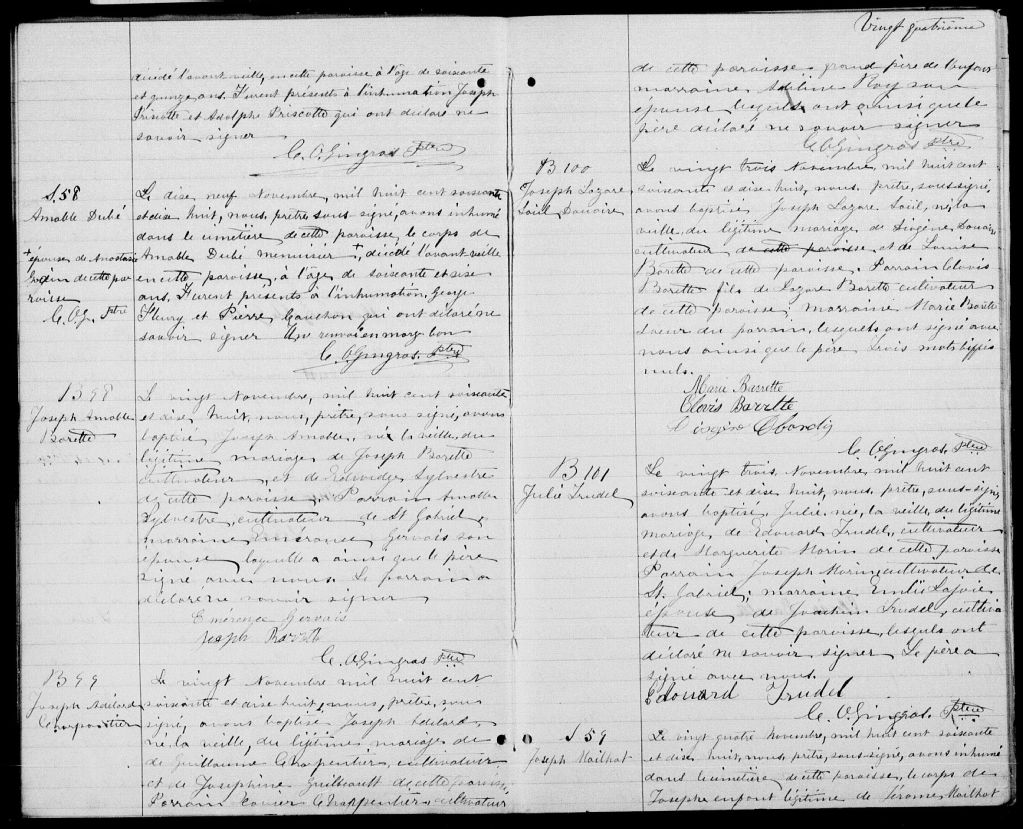 décédé l'avant veille, en cette paroisse à l'âge de soixante
et quinze ans. Furent présents à l'inhumation Joseph
Friscotte et Adolphe Friscotte qui ont déclaré ne
savoir signer
C. O. Gingras Ptre
S. 58
Amable Dubé
+ épouse de Anastasie
de cette pa-
roisse
C. O. G. Ptre
Le dixe neuf Novembre, mil huit cent soixante
et dixe huit, nous, prêtre sous signé, avons inhumé
dans le cimetière de cette paroisse, le corps de
Amable Dubé menuisier +, décédé l'avant veille
en cette paroisse, à l'âge de soixante et dixe
ans. Furent présents à l'inhumation, George
Fleury et Pierre Gauthon qui ont déclaré ne
savoir signer Un renvoi en marge bon
C. O. Gingras. Ptre
B 98
Joseph Amable
Barette
Le vingt Novembre, mil huit cent soixante
et dixe huit, nous, prêtre, sous signé, avons
baptisé Joseph Amable, né la veille, du
légitime mariage de Joseph Barette
cultivateur, et de Edwidge Sylvestre
de cette paroisse. Parrain Amable
Sylvestre, cultivateur de St Gabriel,
marraine Emérance Gervais son
épouse laquelle a ainsi que le père
signé avec nous. Le parrain a
déclaré ne savoir signer
Emérence Gervais
Joseph Barette
C. O. Gingras Ptre
B 99
Joseph Adélard
Charpentier
Le vingt Novembre mil huit cent
soixante et dixe huit, nous, prêtre, sous
signé, avons baptisé Joseph Adélard,
né, la veille, du légitime mariage de
de Guillaume Charpentier, cultivateur
et de Josephine Guilbault de cette paroisse,
Parrain Xavier Charpentier cultivateur
Vingt quatrième
de cette paroisse grand père de l'enfant
marraine Adéline Roy son
épouse lesquels ont ainsi que le
père déclaré ne savoir signer
C. O. Gingras Ptre
B 100
Joseph Lazare
Saül Douaire
Le vingt trois Novembre, mil huit cent
soixante et dixe huit, nous, prêtre, soussigné,
avons baptisé Joseph Lazare Saül, né, la
veille, du légitime mariage de Eugène Douaire
cultivateur de cette paroisse et de Louise
Barette de cette paroisse. Parrain Clovis
Barette fils de Lazare Barette cultivateur
de cette paroisse, marraine Marie Barette
soeur du parrain, lesquels ont signé avec
nous ainsi que le père trois mots biffés
nuls.
Marie Barrette
Clovis Barrette
C. O. Gingras. Ptre
B 101
Julie Trudel
Le vingt trois Novembre, mil huit cent
soixante et dixe huit, nous, prêtre, sous-signé,
avons baptisé Julie, née, la veille, du légitime
mariage, de Edouard Trudel, cultivateur
et de Marguerite Morin de cette paroisse
Parrain Joseph Morin cultivateur de
St. Gabriel, marraine Emilie Lajoie
épouse de Joachim Trudel, cultiva-
teur de cette paroisse, lesquels ont
déclaré ne savoir signer Le père a
signé avec nous.
Edouard Trudel
C. O. Gingras. Ptre
S 59
Joseph Mailhot
Le vingt quatre Novembre, mil huit cent soixante
et dixe huit, nous, prêtre, sous-signé, avons inhumé
dans le cimetière de cette paroisse, le corps de
Joseph enfant légitime de Jérome Mailhot